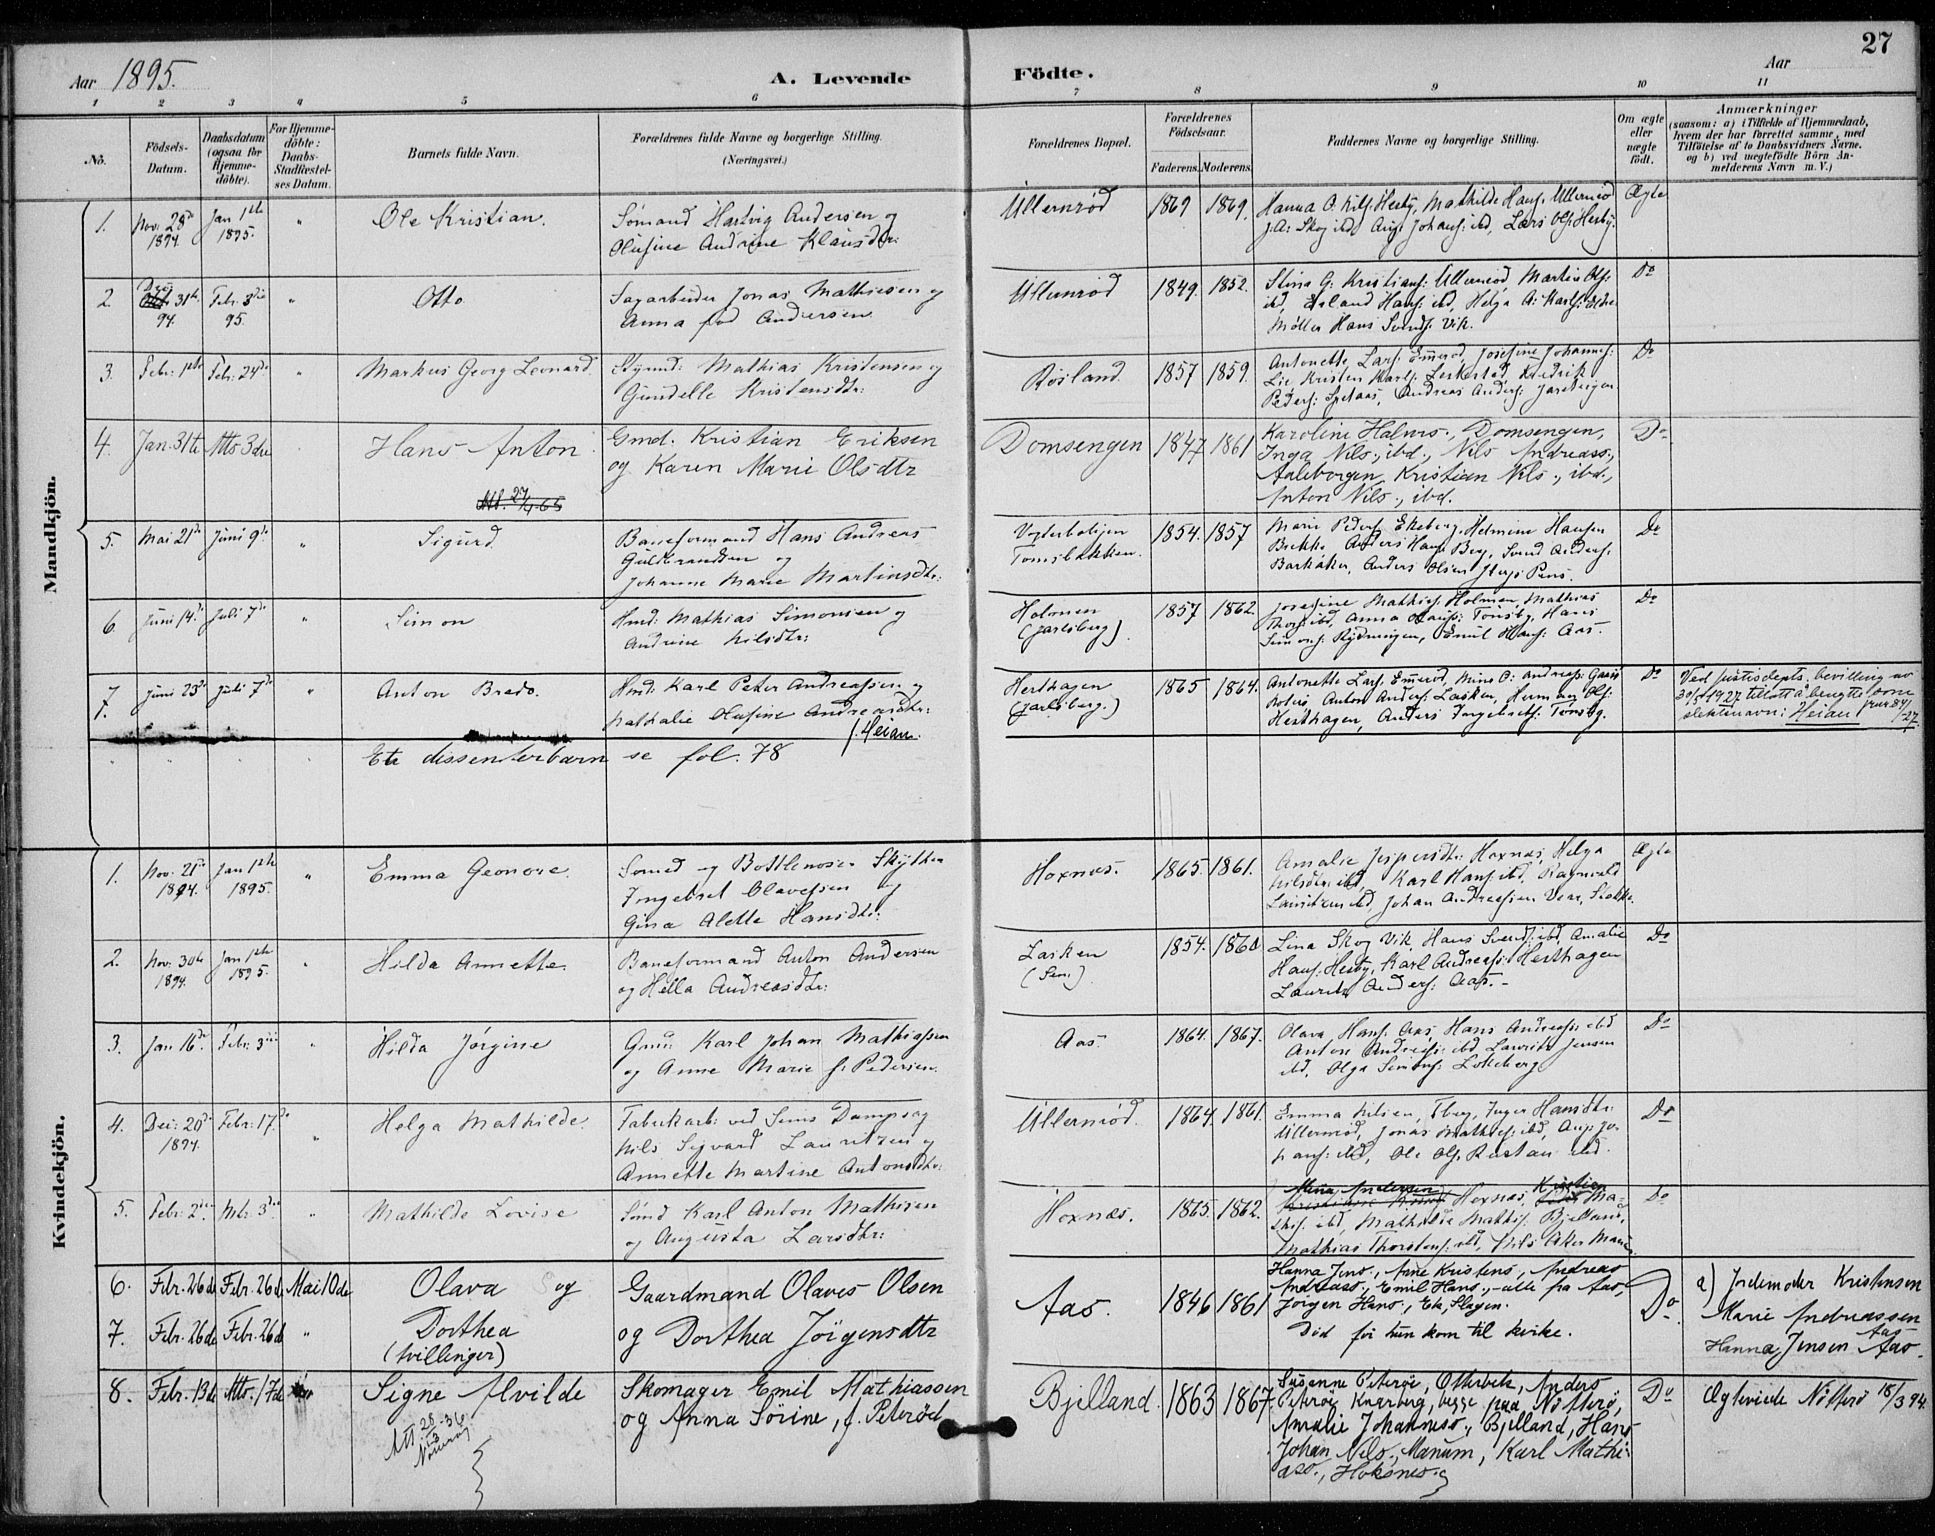 27
Aar 1895. A. Levende Födte. Aar
1 2 3 4 5 6 7 8 9 10 11
No.
Födsels-Datum.
Daabsdatum (ogsaa for Hjemme-döbte).
For Hjemme-döbte: Daabs-Stadfæstel-ses Datum.
Barnets fulde Navn.
Forældrenes fulde Navne og borgerlige Stilling.
(Næringsvei.)
Forældrenes Bopæl.
Forældrenes Födselsaar.
Faderens. Moderens.
Faddernes Navne og borgerlige Stilling.
Om ægte eller uægte födt.
Anmærkninger
(saasom: a) i Tilfælde af Hjemmedaab,
hvem der har forrettet samme, med
Tilföielse af to Daabsvidners Navne.
og b) ved uægtefödte Börn An-
melderens Navn m. V.)
Mandkjön.
1. Nov. 28de 1894. Jan 1ste 1895. " Ole Kristian.
Sømand Hartvig Andersen og
Olufine Andrine Klausdtr:
Ullernrød 1869 1869.
Hanna O. Nils: Hesby, Mathilde Hans: Ullernrød
J. A: Skog ibd, Aug: Johans: ibd, Lars Ols: Hesby.
Ægte
2. Dec 31te 94. Febr. 3die 95. " Otto
Sagarbeider Jonas Mathiesen og
Anna fød Andersen
Ullernrød 1849. 1852.
Stina G: Kristians: Ullernrød, Martin Ols:
ibd, Erland Hans: ibd, Helga A: Karls:
Møller Hans Svends: Vik.
Do
3. Febr: 1ste Febr: 24de " Markus Georg Leonard.
Styrmd: Mathias Kristensen og
Gundelle Kristensdtr:
Røsland. 1857 1859.
Antonette Lars: Smørød, Josefine Johannes:
Lie, Kristen Karls: Leikestad, Kredrik
Peders: Spelaas, Andreas Anders: Jareteigen
Do
4. Jan. 31te Mts 3die Hans Anton
Gmd. Kristian Eriksen
og Karen Marie Olsdtr
Att. 27/4-65
Domsengen 1847 1861
Karoline Halvors., Domsengen,
Inga Nils., ibd., Nils Andreass.,
Aaleborgen, Kristian Nils., ibd.,
Anton Nils., ibd.
Do
5. Mai 21de Juni 9de " Sigurd
Baneformand Hans Andreas
Guldbrandsen og
Johanne Marie Martinsdtr:
Vogterboligen
Tomsbakken. 1854. 1857
Marie Peders: Ekeberg, Helmine Hansen
Brekke, Anders Hans: Berg, Svend Anders:
Barkaker, Anders Olsen
Do
6. Juni 14de. Juli 7de " Simon
Hmd: Mathias Simonsen og
Andrine Nilsdtr:
Holmen
(Jarlsberg) 1857 1862.
Josefine Mathis: Holmen, Mathias
Thors: ibd, Anna Hans: Tønsbg, Hans
Simons: Rydningen, Emil Hans: Aas.
Do
7. Juni 23de Juli 7de " Anton Bredo.
Hmd: Karl Peter Andreassen og
Nathalie Olufine Andreasdtr:
f. Heian.
Herthagen
(Jarlsberg.) 1865 1864.
Antonette Lars: Smørød, Mina O: Andreass: Gaasi
Bolvi, Anton Anders: Lasken, Herman Ols:
Herthagen, Anders Ingebrets: Tønsbg.
Do
Ved justisdepts. bevilling av
30/5 1927 tillatt å benytte som
slektsnavn: Heian jnr 84/27
Et dissenterbarn se fol. 78
Kvindekjön.
1. Nov. 21de 1894 Jan 1ste 1895. " Emma Geonore.
Sømd og Bottlenose Skytter
Ingebret Olavessen og
Gina Alette Hansdtr:
Hoxnæs. 1865. 1861.
Amalie Jespersdtr: Hoxnæs, Helga
Nilsdtr: ibd, Karl Hans: ibd, Ragnvald
Lauritzen ibd, Johan Andreassen Vear, Stokke.
Ægte
2. Nov. 30te 1894. Jan 1ste 1895. " Hilda Annette.
Baneformand Anton Andersen
og Hella Andreasdtr:
Lasken
(Sem) 1854. 1860.
Lina Skog Vik, Hans Svends: ibd, Amalie
Hans: Hesby, Karl Andreass: Herthagen
Lauritz Anders: Aas.-
Do
3. Jan 16de. Febr: 3die " Hilda Jørgine
Gmd: Karl Johan Mathiassen
og Anne Marie f. Pedersen.
Aas. 1864. 1867.
Olava Hans: Aas, Hans Andreass: ibd
Anton Andreass: ibd, Lauritz Jensen
ibd, Olga Simons: Lokeberg
Do
4. Dec: 20de 1894. Febr: 17de " Helga Mathilde.
Fabrikarb: ved Sems Dampsag
Nils Sigvard Lauritzen og
Annette Martine Antonsdtr:
Ullernrød. 1864. 1861.
Emma Nilsen, Tbg, Inger Hansdtr:
Ullernrød, Jonas Mathis: ibd, Aug: Jo-
hans: ibd, Ole Ols: Rustan ibd.
Do
5. Febr. 2den. Mts: 3die " Mathilde Lovise
Sømd Karl Anton Mathisen
og Augusta Larsdtr:
Hoxnæs. 1865. 1862.
Mina Andersen Hoxnæs, Kristian Ma-
this: ibd, Mathilde Mathis: Bjelland,
Mathias Thorstens: ibd, Nils Aker Manum.
Do
6. Febr. 26de Febr. 26de Mai 10de Olava og
7. Febr. 26de Febr. 26de " Dorthea
(tvillinger)
Gaardmand Olaves Olsen
og Dorthea Jörgensdtr
Aas. 1846 1861
Hanna Jens., Anne Kristens., Andreas
Andreass., Emil Hans.,-alle fra Aas,
Jörgen Hans., Ek, Slagen.
Död för hun kom til kirke.
Do
a) Jordemoder Kristensen
Marie Andreassen
Aas
Hanna Jensen Aas.
8. Febr. 13de Mts. 17de Signe Alvilde
Att 28/10-36
Skomager Emil Mathiassen
og Anna Sörine, f. Peteröd
Bjelland. 1863 1867
Susanne Peteröe, Otterbek, Anders
Peteröe Knarberg, begge paa Nötterö,
Amalie Johanness., Bjelland, Hans
Johan Nils., Manum, Karl Mathi-
ass., Hoksnes.
Do
Ægteviede Nötterö 18/3 94.